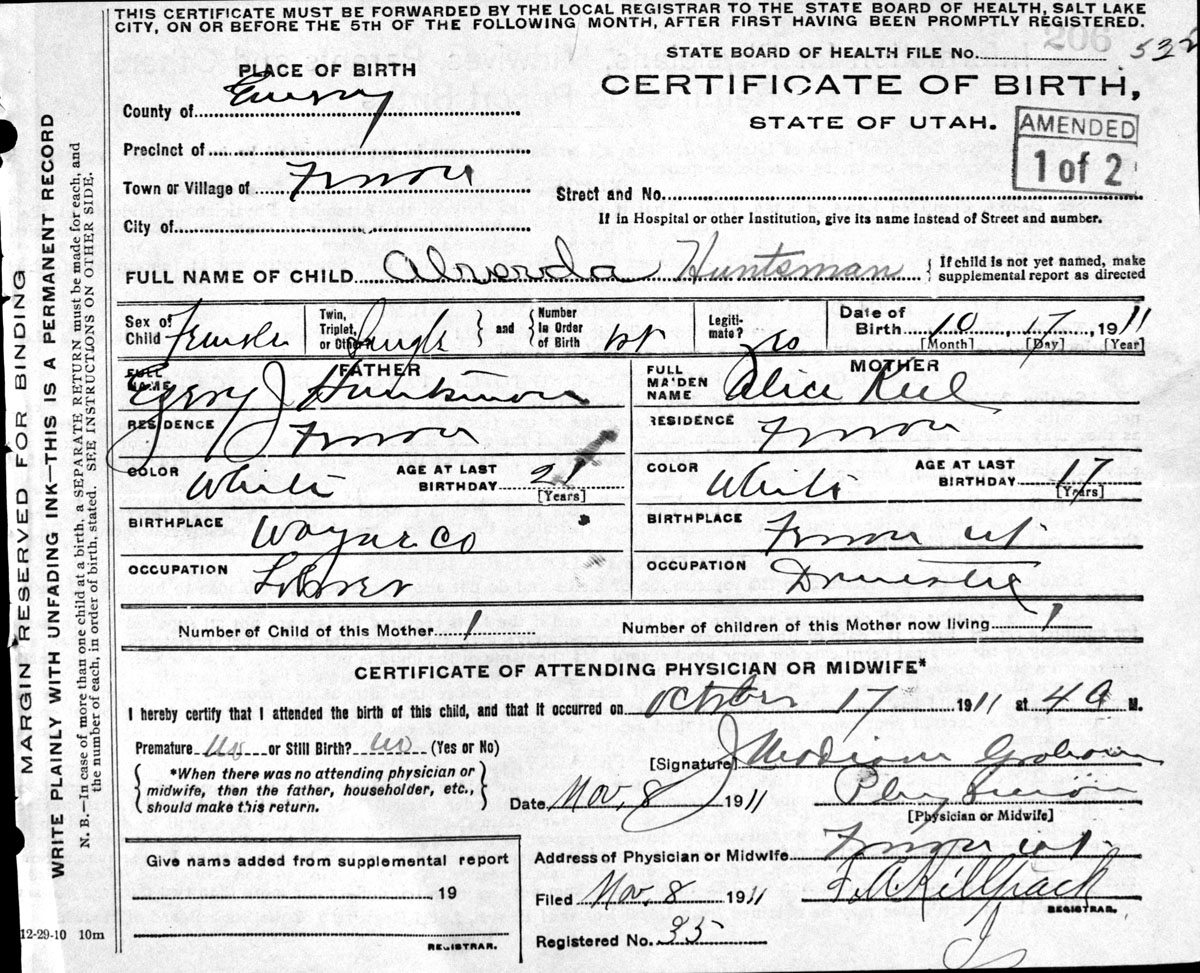 THIS CERTIFICATE MUST BE FORWARDED BY THE LOCAL REGISTRAR TO THE STATE BOARD OF HEALTH, SALT LAKE
CITY, ON OR BEFORE THE 5TH OF THE FOLLOWING MONTH, AFTER FIRST HAVING BEEN PROMPTLY REGISTERED.
206
STATE BOARD OF HEALTH FILE No. 532
PLACE OF BIRTH
CERTIFICATE OF BIRTH,
STATE OF UTAH.
AMENDED
1 of 2
County of Emery
Precinct of
Town or Village of Ferron
Street and No.
City of
If in Hospital or other Institution, give its name instead of Street and number.
FULL NAME OF CHILD Alverda Huntsman
{ If child is not yet named, make
supplemental report as directed
Sex of Child Female
Twin, Triplet, or Other? Single
and
Number in Order of Birth 1st
Legiti- mate? yes
Date of Birth 10 17, 1911
[Month] [Day] [Year]
FATHER
MOTHER
FULL NAME J Huntsman
FULL MAIDEN NAME Alice
RESIDENCE Ferron
RESIDENCE Ferron
COLOR White AGE AT LAST BIRTHDAY 21 [Years]
COLOR White AGE AT LAST BIRTHDAY 17 [Years]
BIRTHPLACE Wayne Co
BIRTHPLACE Ferron Ut.
OCCUPATION Laborer
OCCUPATION Domestic
Number of Child of this Mother 1
Number of children of this Mother now living 1
CERTIFICATE OF ATTENDING PHYSICIAN OR MIDWIFE*
I hereby certify that I attended the birth of this child, and that it occurred on October 17 1911 at 4 A M.
Premature No or Still Birth? no (Yes or No)
*When there was no attending physician or
midwife, then the father, householder, etc.,
should make this return.
[Signature] J
Date Nov. 8 1911
Physician
[Physician or Midwife]
Give name added from supplemental report
19
REGISTRAR.
Address of Physician or Midwife Ferron Ut.
Filed Nov. 8 1911
Killpack
REGISTRAR.
Registered No. 35
12-29-10 10m
MARGIN RESERVED FOR BINDING
WRITE PLAINLY WITH UNFADING INK—THIS IS A PERMANENT RECORD
N. B.—In case of more than one child at a birth, a SEPARATE RETURN must be made for each, and
the number of each, in order of birth, stated. SEE INSTRUCTIONS ON OTHER SIDE.